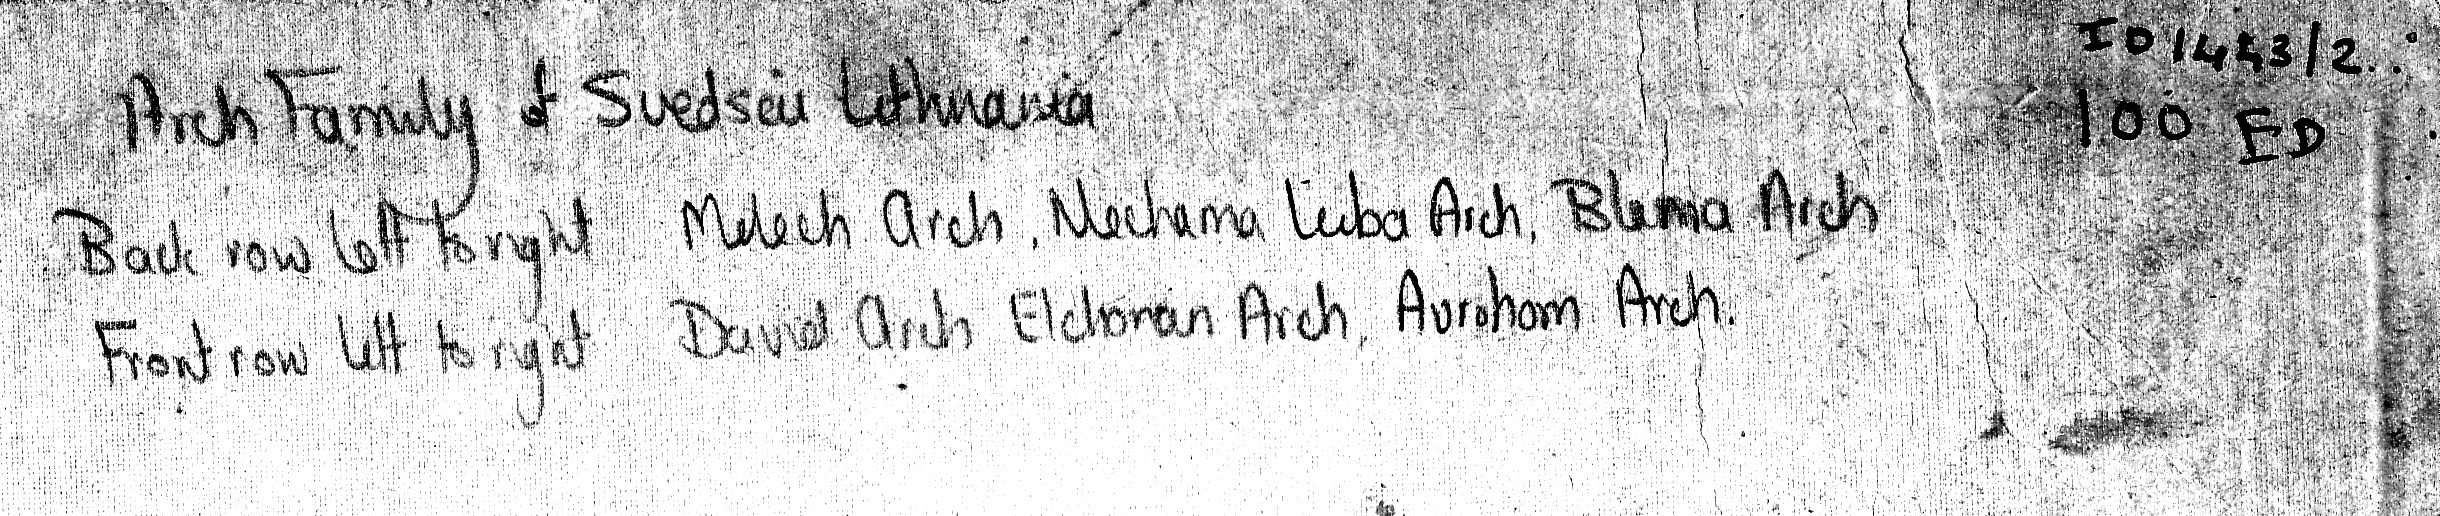 Arch Family of Svedsai Lithuania
Back row left to right Melech Arch, Nechama Liuba Arch, Bluma Arch
Front row left to right David Arch Elchonan Arch, Avrohom Arch.
100 ED